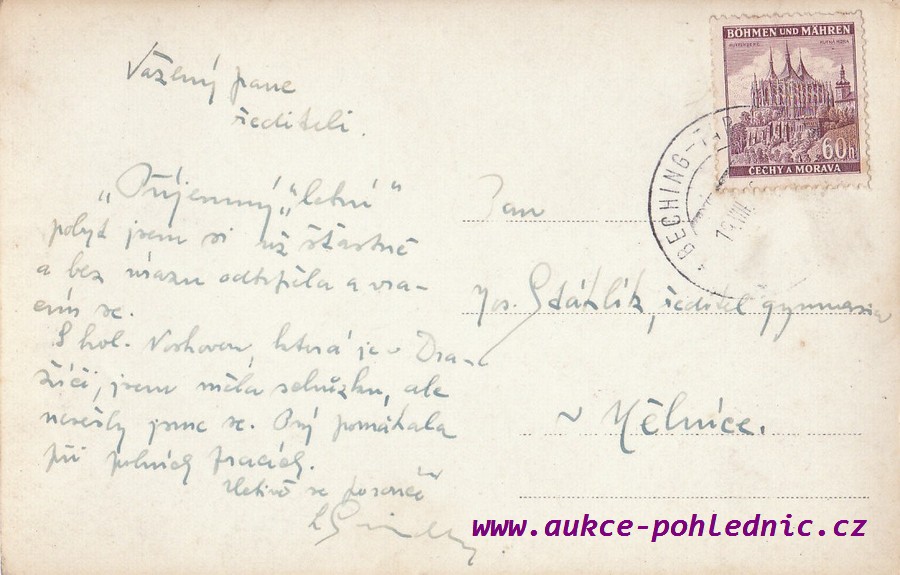 Vážený pane
řediteli.
„Příjemný“ „letní“
pobyt jsem si už šťastně
a bez úrazu odtrpěla a vra-
cím se.
S kol. Noskovou, která je v Dra-
žíči, jsem měla schůzku, ale
nesešly jsme se. Prý pomáhala
při polních pracích.
Uctivě se poroučí
BÖHMEN UND MÄHREN
KUTTENBERG KUTNÁ HORA
60h
ČECHY A MORAVA
BECHING-TAB
Pan
Jos. ředitel gymnasia
v Mělníce.
www.aukce-pohlednic.cz